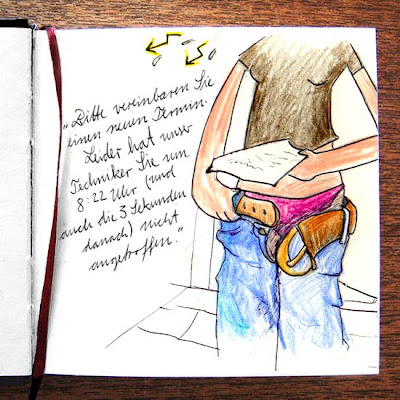 "Bitte vereinbaren Sie
einen neuen Termin.
Leider hat unser
Techniker Sie um
8:22 Uhr (und
auch die 3 Sekunden
danach) nicht
angetroffen."